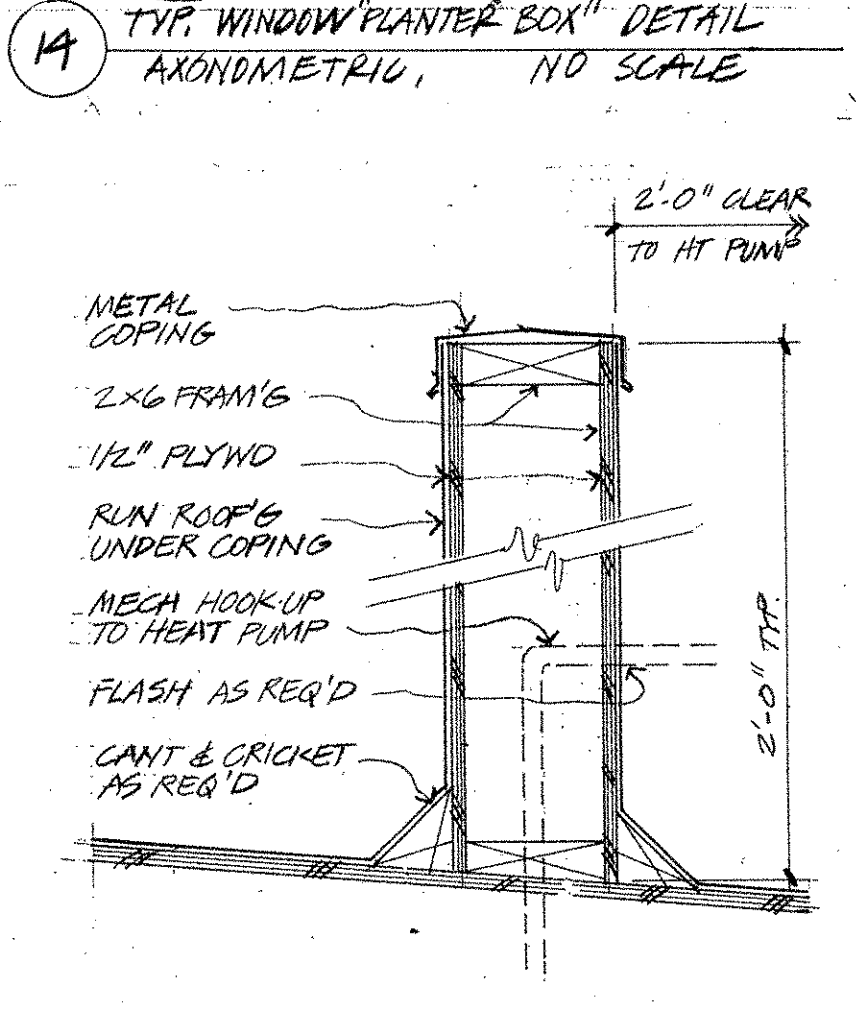 14
TYP. WINDOW "PLANTER BOX" DETAIL
AXONOMETRIC, NO SCALE
2'-0" CLEAR
TO HT PUMP
METAL
COPING
2×6 FRAM'G
1/2" PLYWD
RUN ROOF'G
UNDER COPING
MECH HOOK-UP
TO HEAT PUMP
FLASH AS REQ'D
CANT & CRICKET
AS REQ'D
2'-0" TYP.